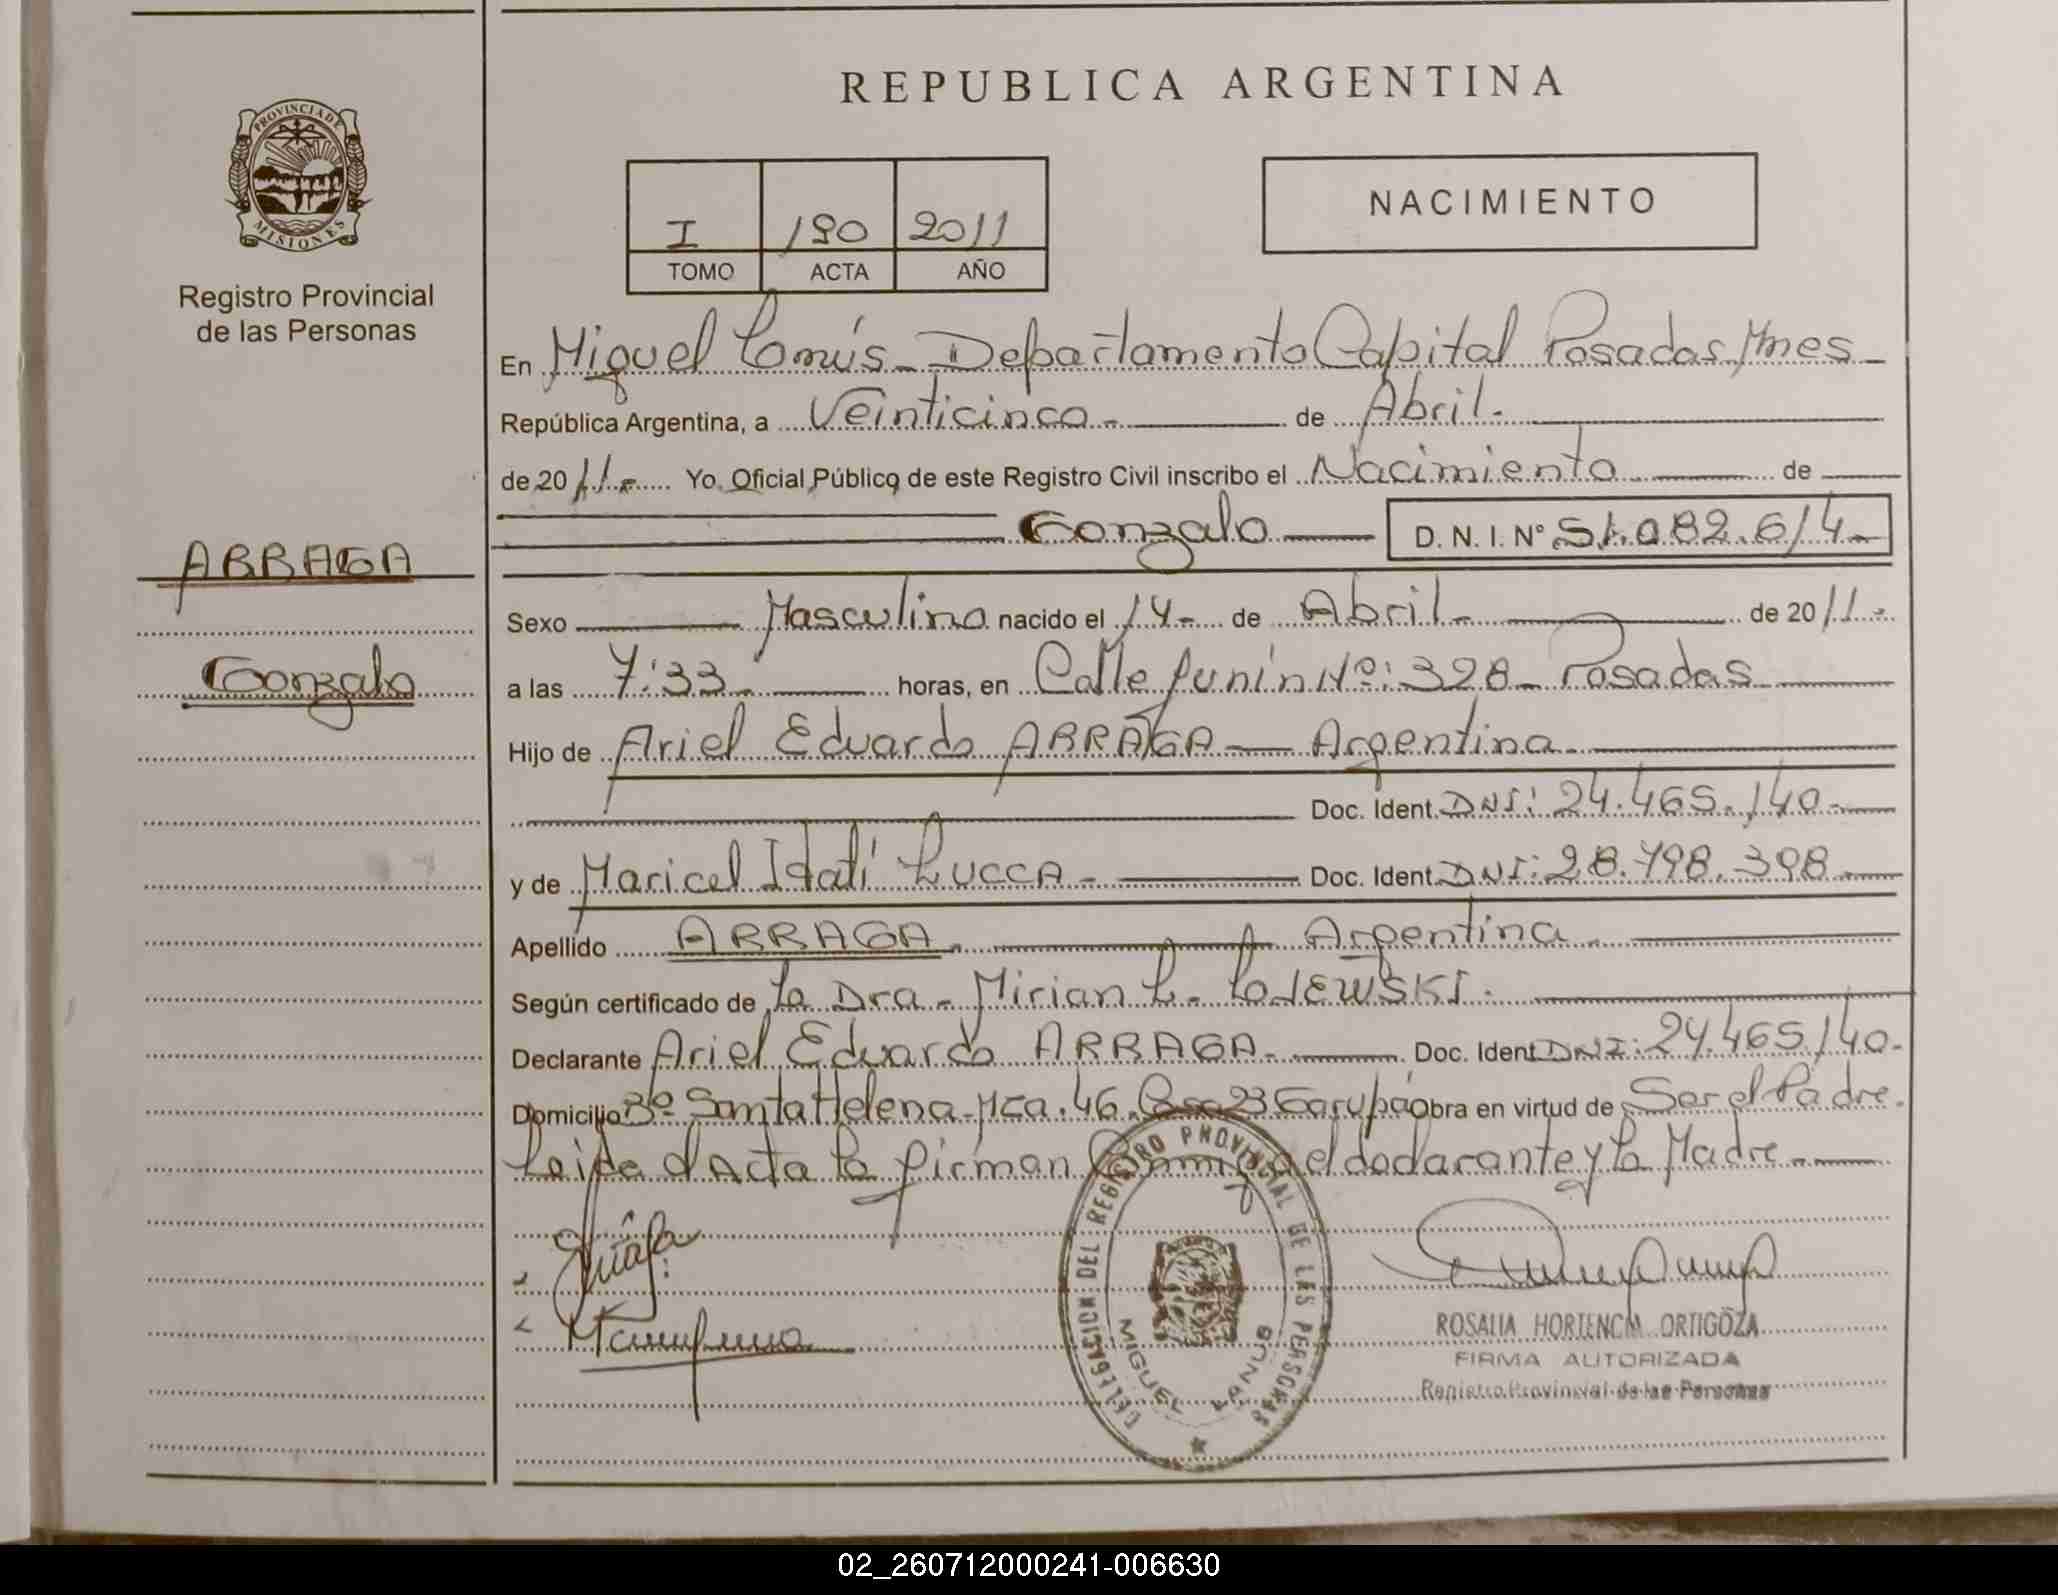 REPUBLICA ARGENTINA
PROVINCIA DE
MISIONES
Registro Provincial
de las Personas
I 190 2011
TOMO ACTA AÑO
NACIMIENTO
En Miguel Lanús - Departamento Capital Posadas Mnes -
República Argentina, a Veinticinco - de Abril -
de 2011 - Yo Oficial Público de este Registro Civil inscribo el Nacimiento de
Gonzalo D. N. I. Nº 51.082.614 -
ARRAGA
Gonzalo
Sexo Masculino nacido el 14 - de Abril - de 2011 -
a las 7:33 horas, en Calle Junín Nº: 328 - Posadas
Hijo de Ariel Eduardo ARRAGA - Argentina
Doc. Ident. DNI: 24.465.140 -
y de Maricel Itatí LUCCA - Doc. Ident. DNI: 28.798.398
Apellido ARRAGA - Argentina
Según certificado de la Dra - Mirian L.
Declarante Ariel Eduardo ARRAGA - Doc. Ident. DNI: 24.465.140 -
Domicilio Bº Santa Helena - Mza. 46 Casa 23 Garupá obra en virtud de Ser el Padre.
Leída el Acta la firman Conmigo el declarante y la Madre -
DELEGACION DEL REGISTRO PROVINCIAL DE LAS PERSONAS
MIGUEL LANUS
ROSALIA HORTENCIA ORTIGOZA
FIRMA AUTORIZADA
Registro Provincial de las Personas
02_260712000241-006630